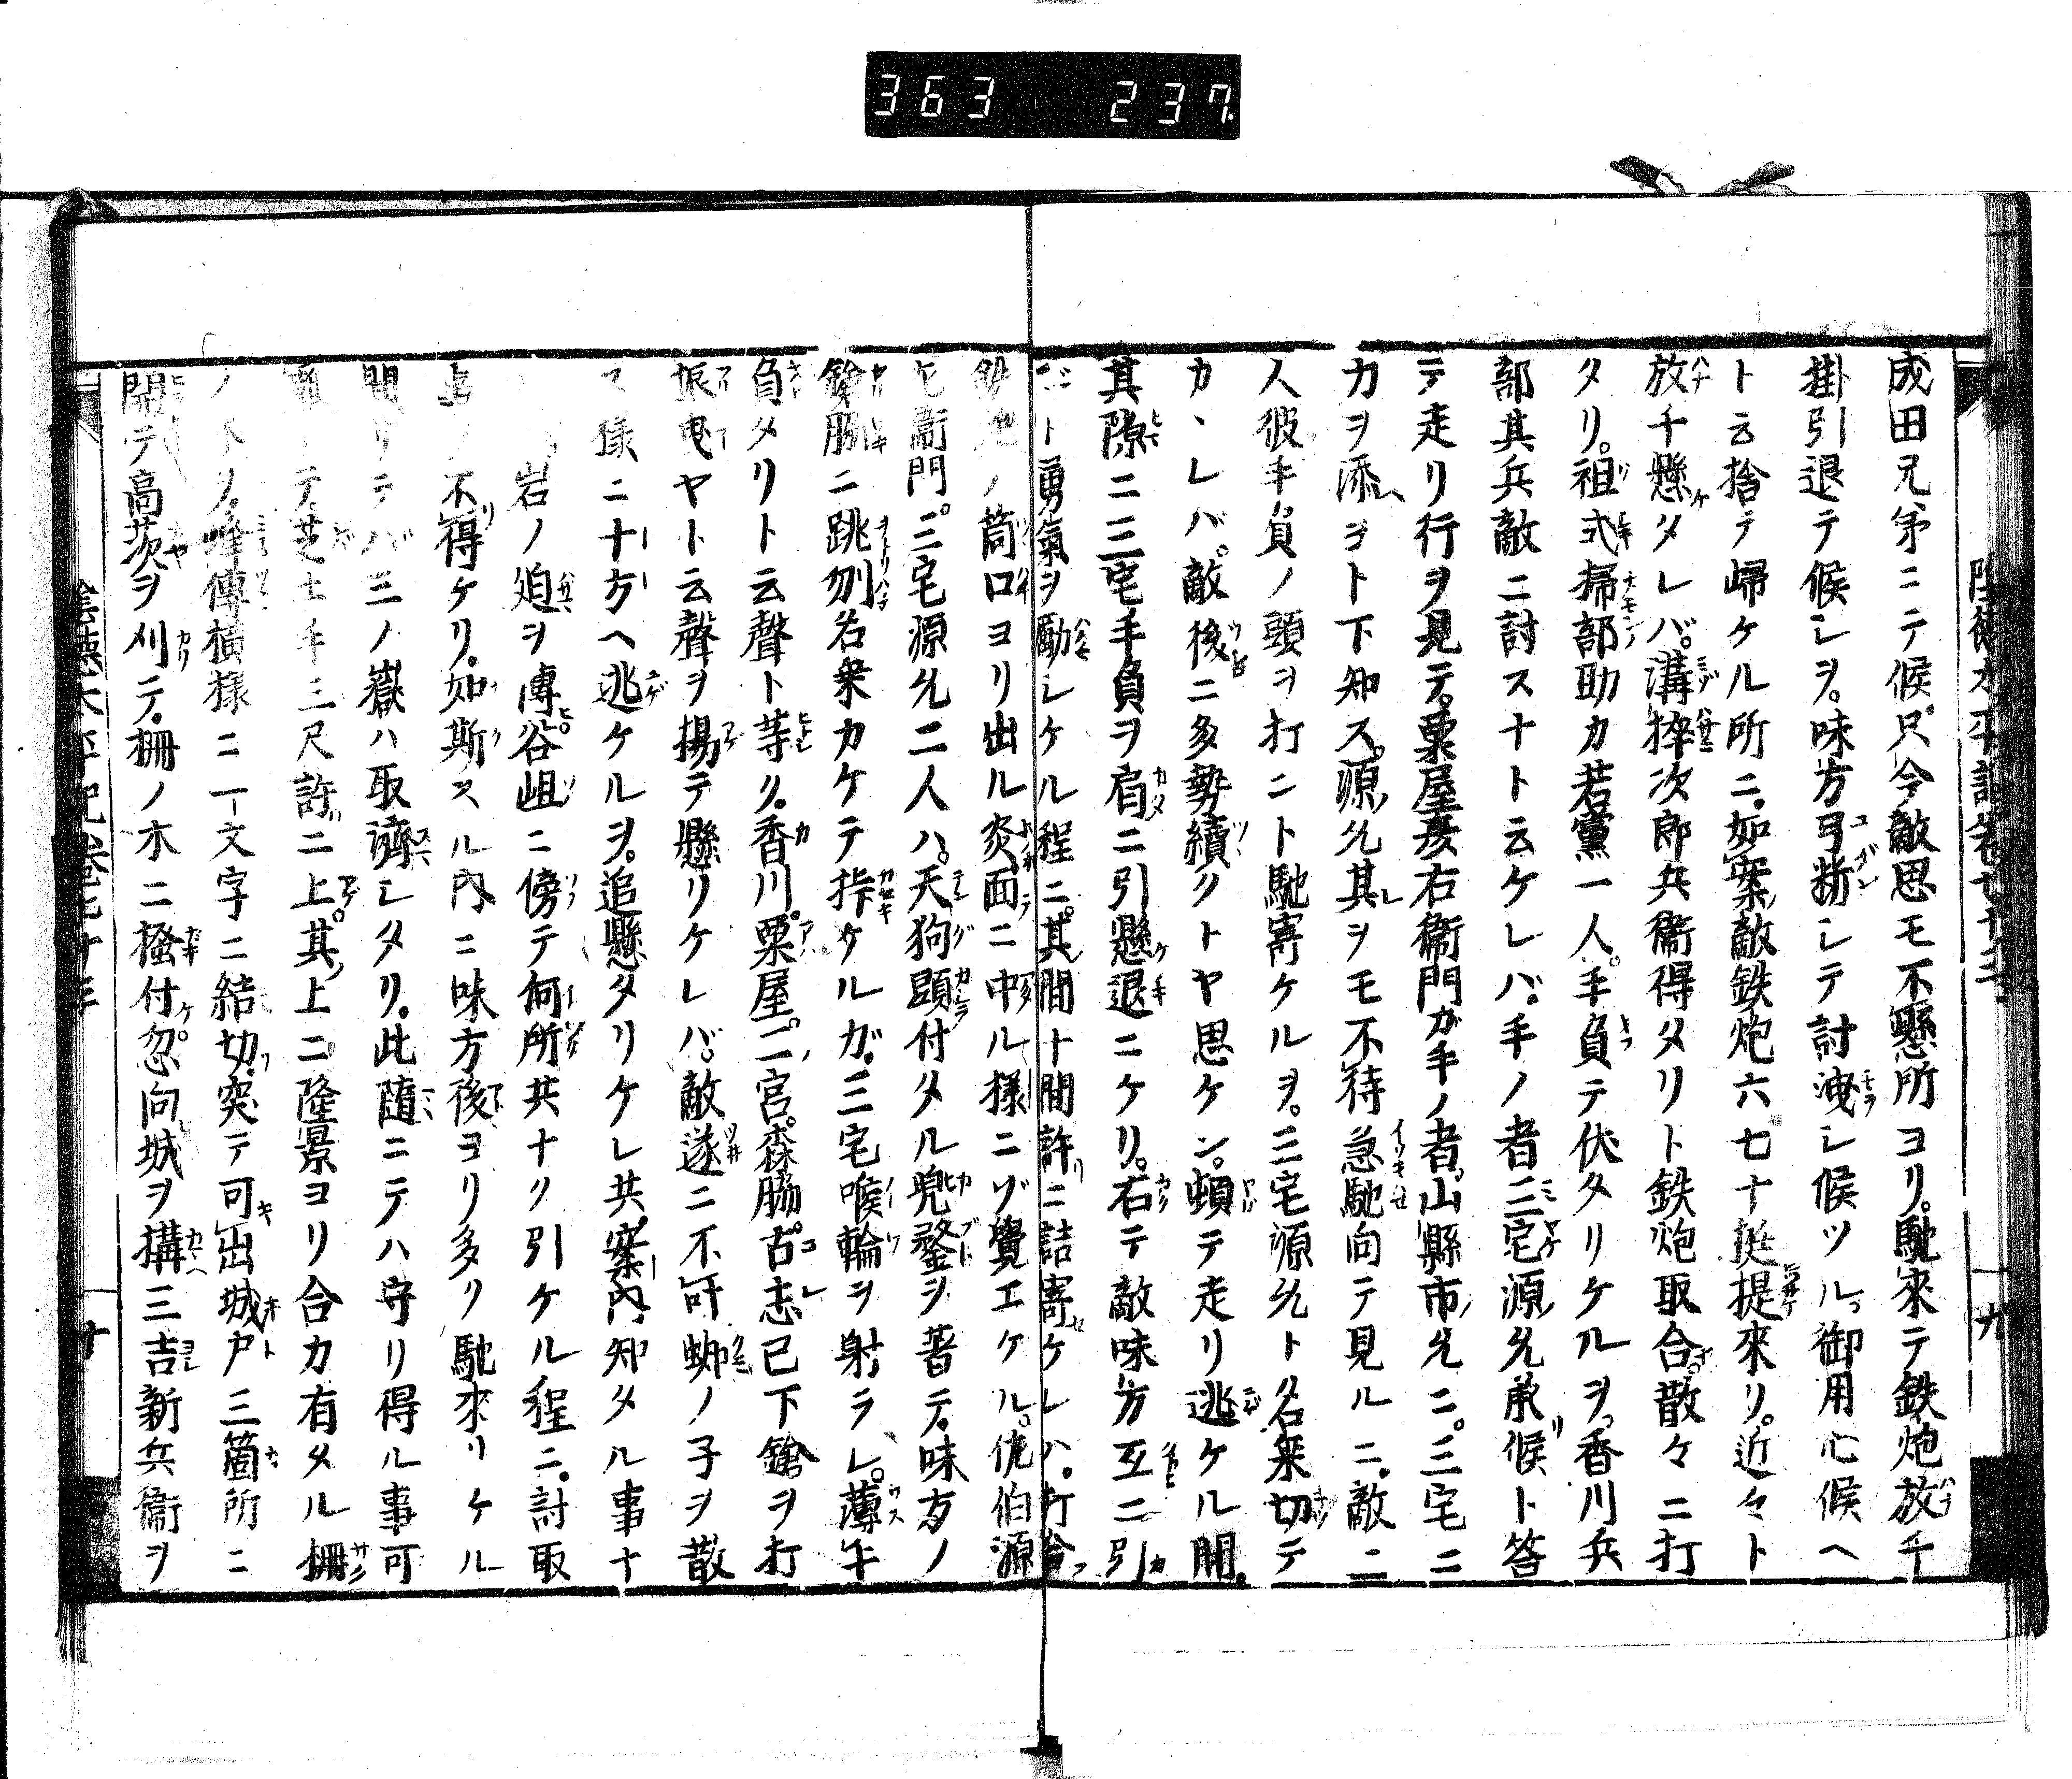 363 237
陰徳太平記巻七十三
九
成田兄弟ニテ候只今敵思モ不懸所ヨリ馳來テ鉄炮放チ
掛引退テ候シヲ味方弓断シテ討洩シ候ツル御用心候ヘ
ト云捨テ帰ケル所ニ如案敵鉄炮六七十挺提來リ近々ト
放チ懸タレバ溝挾次郎兵衞得タリト鉄炮取合散々ニ打
タリ祖式掃部助カ若黨一人手負テ伏タリケルヲ香川兵
部其兵敵ニ討スナト云ケレバ手ノ者三宅源允承候ト答
テ走リ行ヲ見テ粟屋彦右衞門ガ手ノ者山縣市允ニ三宅ニ
力ヲ添ヘヨト下知ス源允其ヲモ不待急馳向テ見ルニ敵二
人彼手負ノ頭ヲ打ント馳寄ケルヲ三宅源允ト名乗切テ
カヽレバ敵後ニ多勢續クトヤ思ケン頓テ走リ逃ケル間
其隙ニ三宅手負ヲ肩ニ引懸退ニケリ右テ敵味方互ニ引
ジト勇氣ヲ勵シケル程ニ其間十間許ニ詰寄ケレハ打合
鉄炮ノ筒口ヨリ出ル炎面ニ中ル様ニゾ覺エケル佐伯源
左衞門三宅源允二人ハ天狗頭付タル兜鍪ヲ著テ味方ノ
鎗脇ニ跳刎名乗カケテ挊ケルガ三宅喉輪ヲ射ラレ薄手
負タリト云聲ト等ク香川粟屋二宮森脇古志已下鎗ヲ打
振曳ヤト云聲ヲ揚テ懸リケレバ敵遂ニ不叶蜘ノ子ヲ散
ス様ニ十方ヘ逃ケルヲ追懸タリケレ共案内知タル事ナ
岩ノ迫ヲ傳谷岨ニ傍テ何所共ナク引ケル程ニ討取
事ノ不得ケリ如斯スル内ニ味方後ヨリ多ク馳來リケル
間サテバ三ノ嶽ハ取濟シタリ此隨ニテハ守リ得ル事可
難トテ芝土手三尺許ニ上其上ニ隆景ヨリ合力有タル柵
ノ木ヲ峰傳横様ニ一文字ニ結切突テ可出城戸三箇所ニ
開テ高茨ヲ刈テ柵ノ木ニ搔付忽向城ヲ構三吉新兵衞ヲ
陰徳太平記巻七十三
十